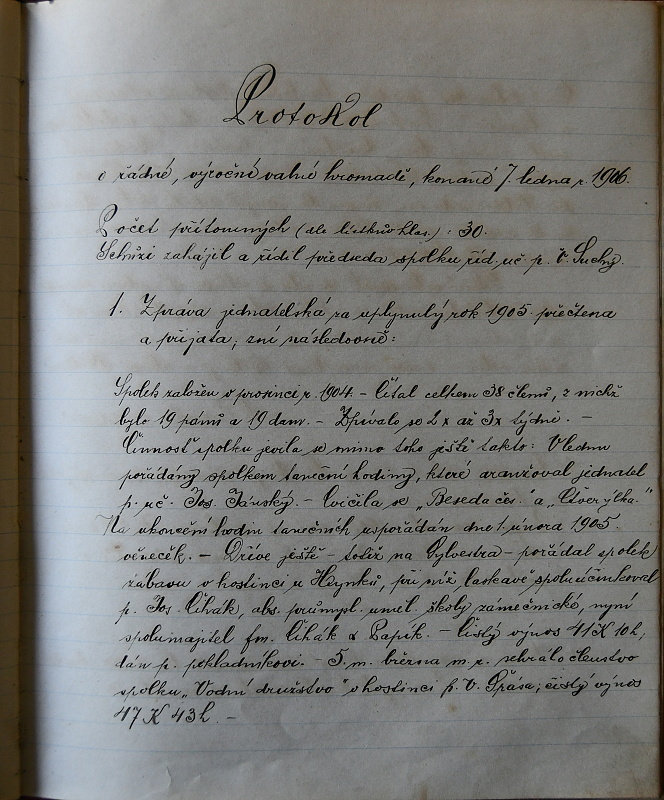 Protokol
o řádné, výroční valné hromadě, konané 7. ledna r. 1906.
Počet přítomných (dle lístkův hlas.): 30.
Schůzi zahájil a řídil předseda spolku říd. uč. p. Č. Suchý.
1. Zpráva jednatelská za uplynulý rok 1905 přečtena
a přijata; zní následovně:
Spolek založen v prosinci r. 1904 - Čítal celkem 38 členů, z nichž
bylo 19 pánů a 19 dam. - Zpívalo se 2x až 3x týdně. -
Činnosť spolku jevila se mimo toho ještě takto: V lednu
pořádány spolkem taneční hodiny, které aranžoval jednatel
p. uč. Jos. Jánský. - Cvičila se „Beseda čes." a „Čtverylka."
Na ukončení hodin tanečních uspořádán dne 1. února 1905.
věneček. - Dříve ještě - totiž na Sylvestra - pořádal spolek
zábavu v hostinci u Hynků, při níž laskavě spoluúčinkoval
p. Jos. Čihák, abs. průmysl. uměl. školy zámečnické, nyní
spolumajitel fm. Čihák & Papík. - Čistý výnos 41 K 10 h,
dán p. pokladníkovi. - 5. m. března m. r. sehrálo členstvo
spolku „Vodní družstvo" v hostinci p. V. Šrása; čistý výnos
47 K 43 h. -